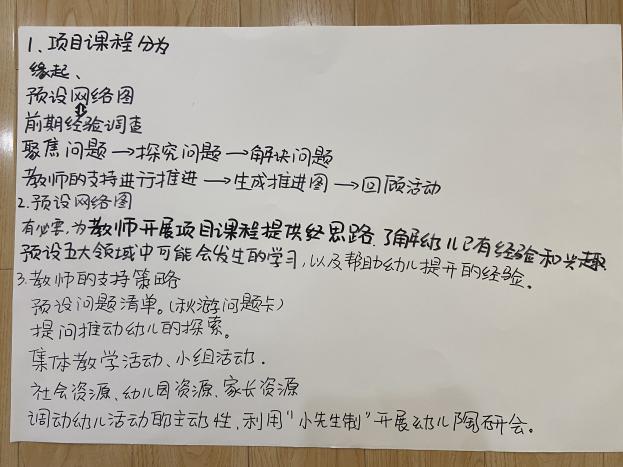 1、项目课程分为
缘起、
预设网络图
↕
前期经验调查
聚焦问题→探究问题→解决问题
教师的支持进行推进→生成推进图→回顾活动
2.预设网络图
有必要,为教师开展项目课程提供思路.了解幼儿已有经验和兴趣
预设五大领域中可能会发生的学习,以及帮助幼儿提升的经验.
3.教师的支持策略
预设问题清单。(秋游问题卡)
提问推动幼儿的探索。
集体教学活动、小组活动.
社会资源、幼儿园资源、家长资源
调动幼儿活动的主动性、利用"小先生制"开展幼儿 研会。